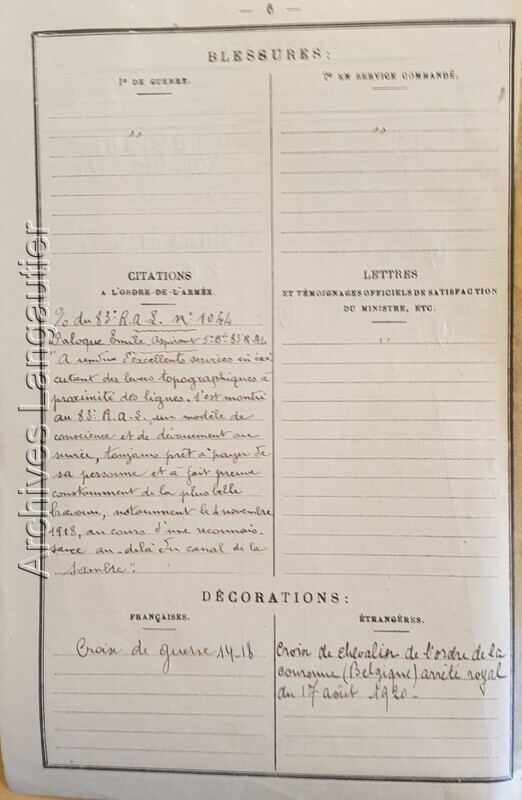 — 6 —
BLESSURES:
1º DE GUERRE.
2º EN SERVICE COMMANDÉ.
" "
" "
CITATIONS
A L'ORDRE DE L'ARMÉE.
LETTRES
ET TÉMOIGNAGES OFFICIELS DE SATISFACTION
DU MINISTRE, ETC.
" "
du 83e R.A.L. No 1044
Paloque Émile Aspirant 5e Bie 83e R.A.L
"A rendu d'excellents services en exé
cutant des levers topographiques à
proximité des lignes. S'est montré
au 83e R.A.L. un modèle de
conscience et de dévouement au
service, toujours prêt à payer de
sa personne et a fait preuve
constamment de la plus belle
bravoure, notamment le 4 novembre
1918, au cours d'une reconnais-
sance au-delà du canal de la
Sambre".
DÉCORATIONS:
FRANÇAISES.
ÉTRANGÈRES.
Croix de guerre 14-18
Croix de chevalier de l'ordre de la
couronne (Belgique) arrêté royal
du 17 août 1920-
Archives Langautier